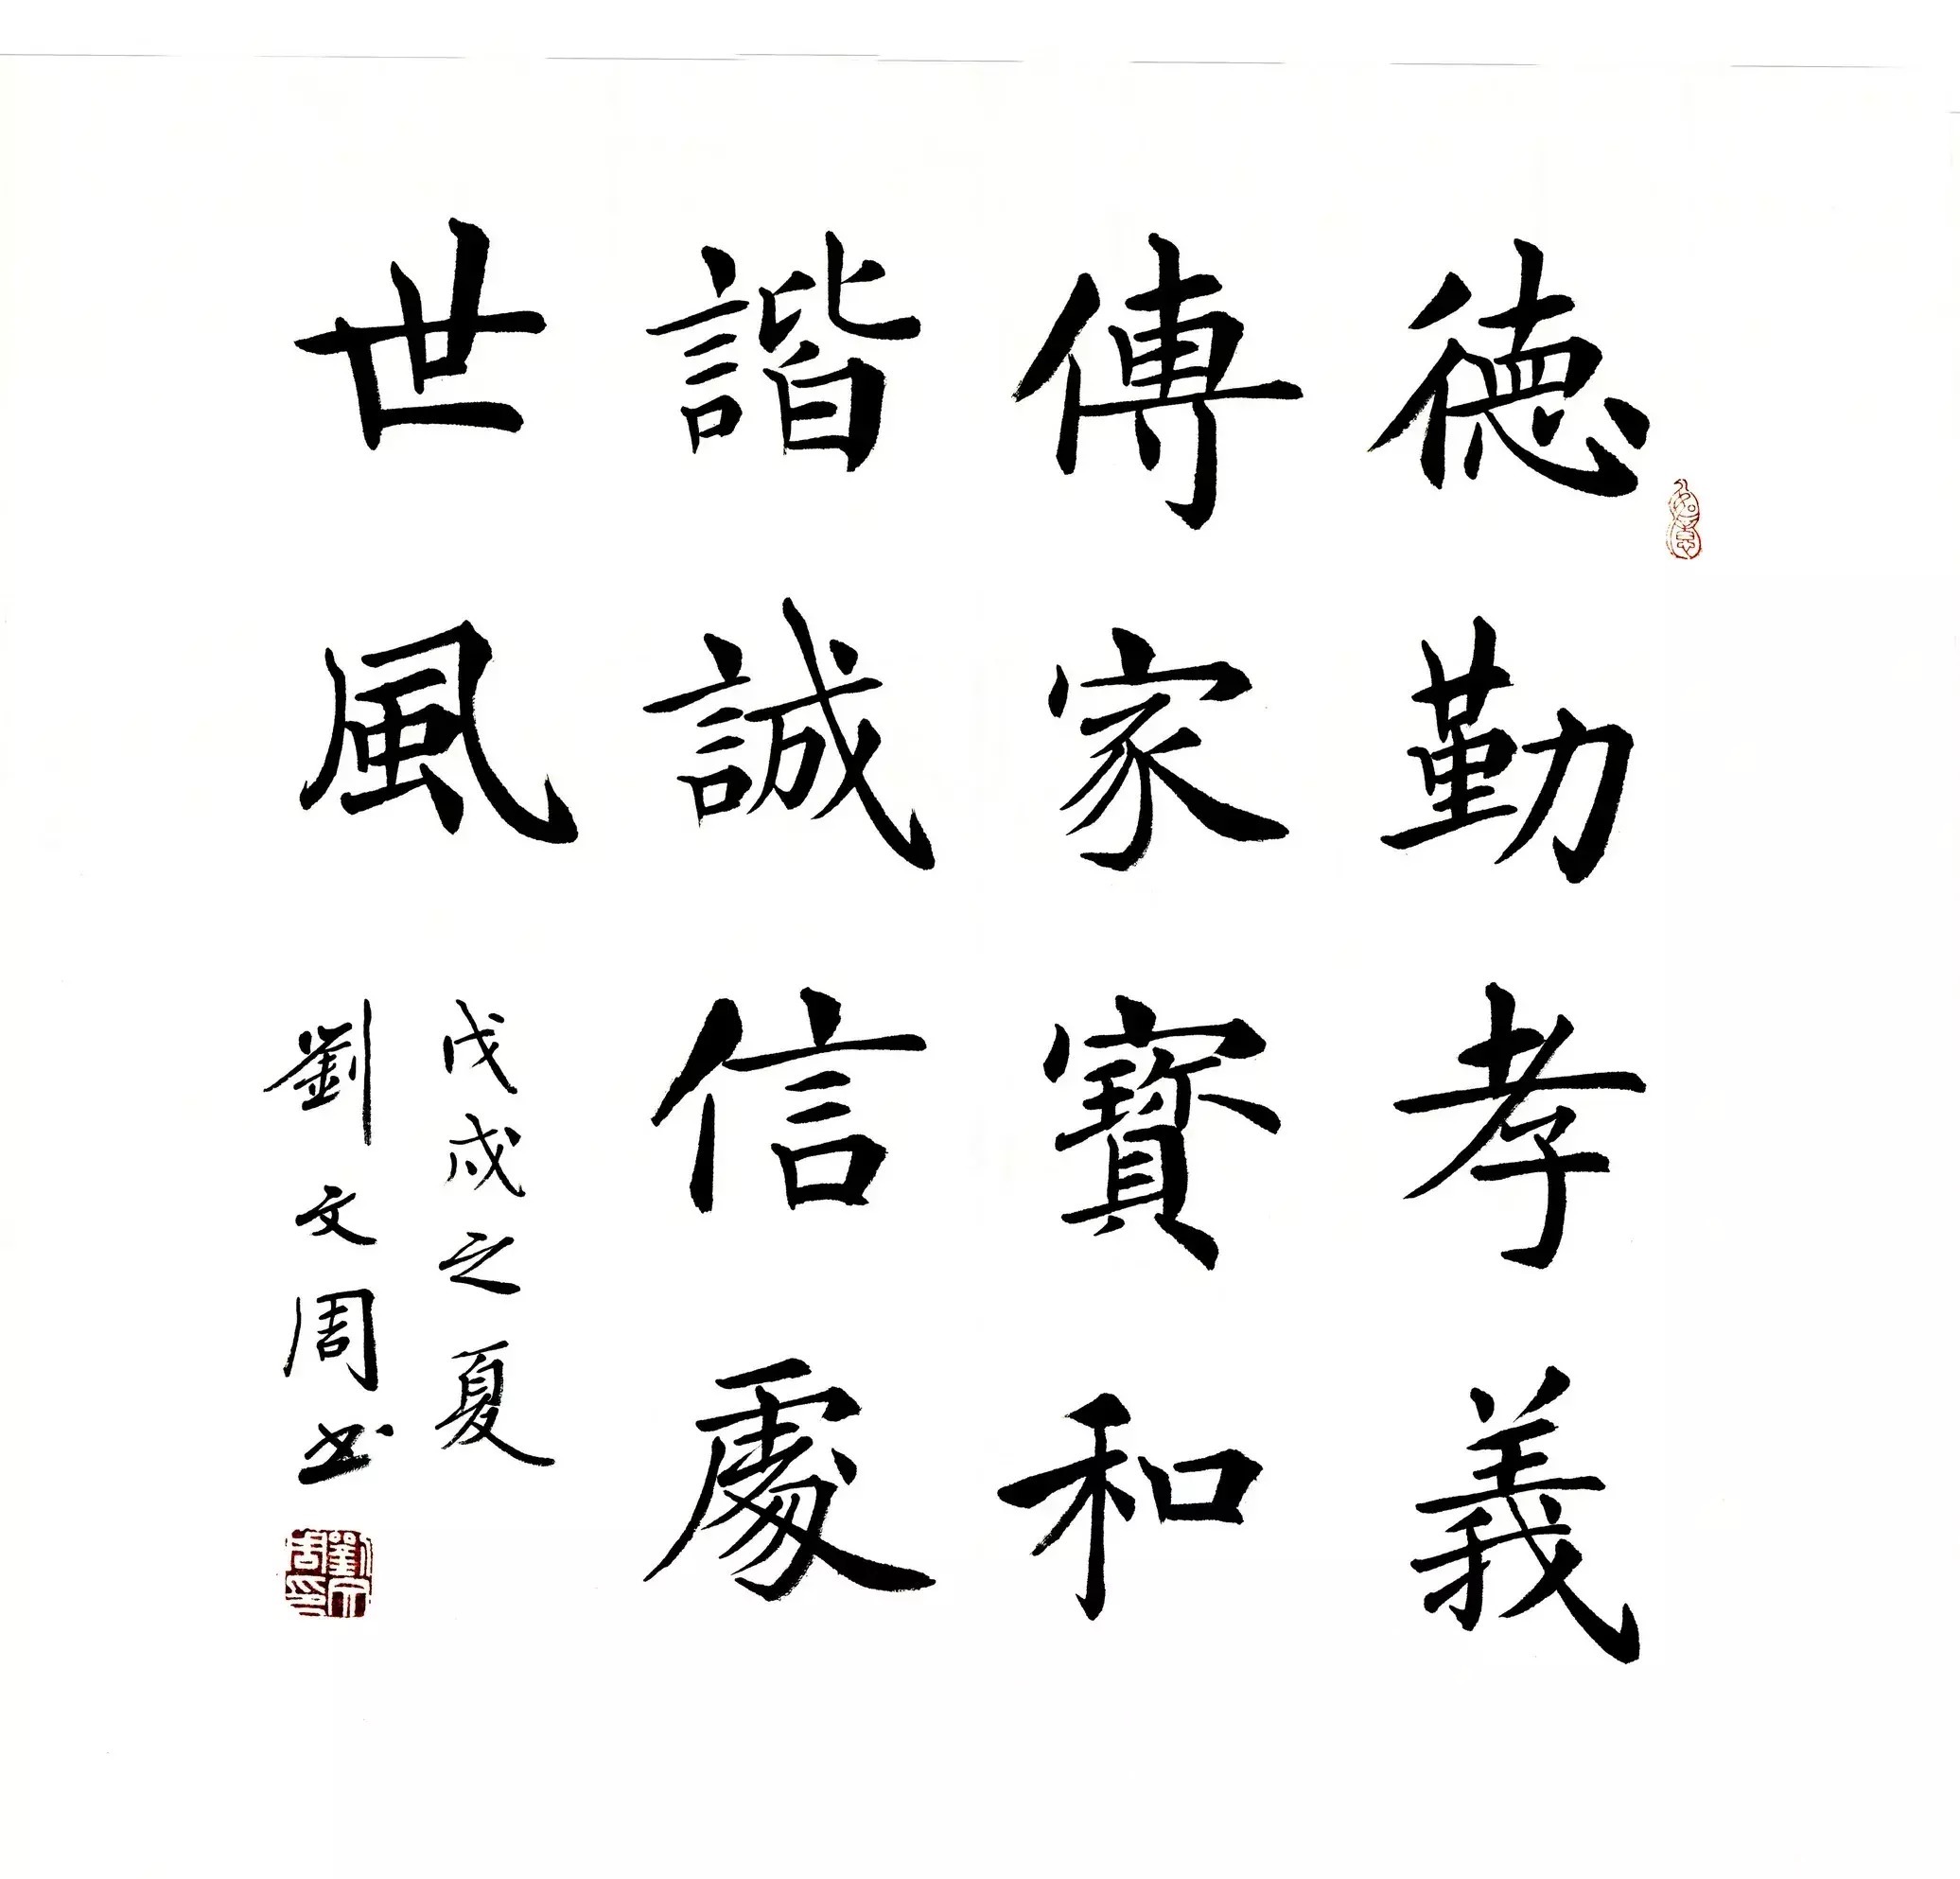 德勤孝義
傳家寶和
諧誠信處
世風
戊戌之夏
劉文周书
劉文周印